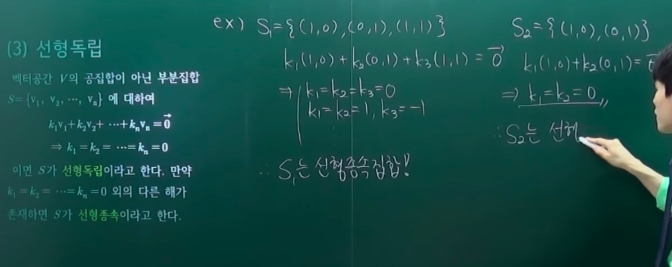 (3) 선형독립
벡터공간 V의 공집합이 아닌 부분집합
S={v₁, v₂, ⋯, vₙ} 에 대하여
k₁v₁+k₂v₂+ ⋯ +kₙvₙ=0⃗
⇒ k₁=k₂= ⋯ =kₙ=0
이면 S가 선형독립이라고 한다. 만약
k₁=k₂= ⋯ =kₙ=0 외의 다른 해가
존재하면 S가 선형종속이라고 한다.
ex) S₁={(1,0), (0,1), (1,1)}
k₁(1,0)+k₂(0,1)+k₃(1,1)=0⃗
⇒ k₁=k₂=k₃=0
k₁=k₂=1, k₃=-1
⋮
∴ S₁는 선형종속집합!
S₂={(1,0), (0,1)}
k₁(1,0)+k₂(0,1)=0⃗
⇒ k₁=k₂=0
∴ S₂는 선형